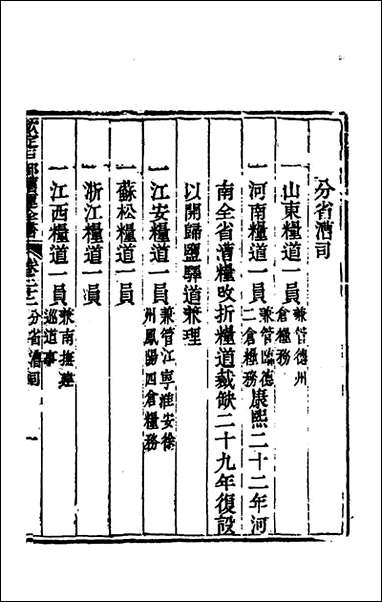 分省漕司
一山東糧道一員兼管德州倉糧務
一河南糧道一員兼管臨德二倉糧務康熙二十二年河
南全省漕糧改折糧道裁缺二十九年復設
以開歸鹽驛道兼理
一江安糧道一員兼管江寧淮安徐州鳳陽四倉糧務
一蘇松糧道一員
一浙江糧道一員
一江西糧道一員兼南撫建巡道事
欽定戶部漕運全書
卷二十二
分省漕司
一